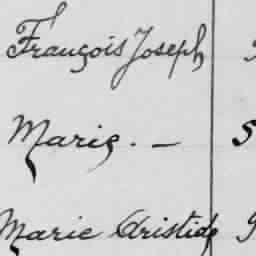 François Joseph
Marie. —
Marie Aristide